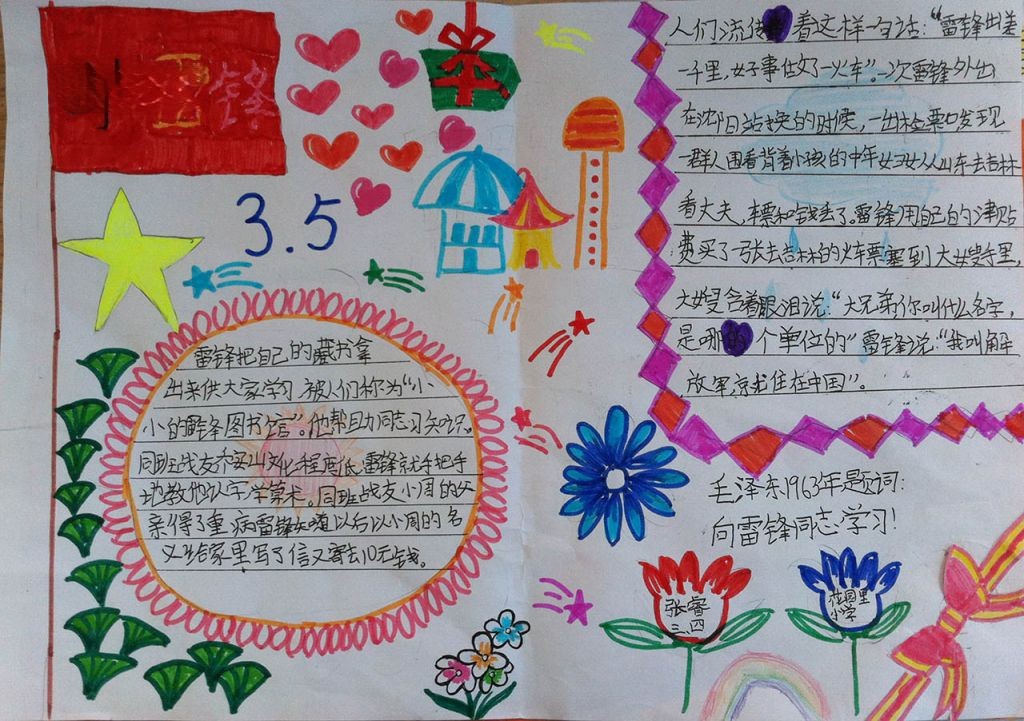 雷锋
3.5
雷锋把自己的藏书拿
出来供大家学习,被人们称为“小
小的雷锋图书馆”。他帮助同志习知识。
同班战友乔安山文化程度低,雷锋就手把手
地教他认字,学算术。同班战友小周的父
亲得了重病雷锋知道以后以小周的名
义给家里写了信又寄去10元钱。
人们流传着这样一句话:“雷锋出差
一千里,好事做了一火车”。一次雷锋外出
在沈阳站换的时候,一出检票口发现
一群人围着背着小孩的中年妇女从山东去吉林
看丈夫,车票和钱丢了。雷锋用自己的津贴
费买了一张去吉林的火车票塞到大嫂手里,
大嫂含着眼泪说:“大兄弟你叫什么名字,
是哪个单位的”雷锋说:“我叫解
放军,就住在中国”。
毛泽东1963年题词:
向雷锋同志学习!
张睿
三.四
花园里
小学